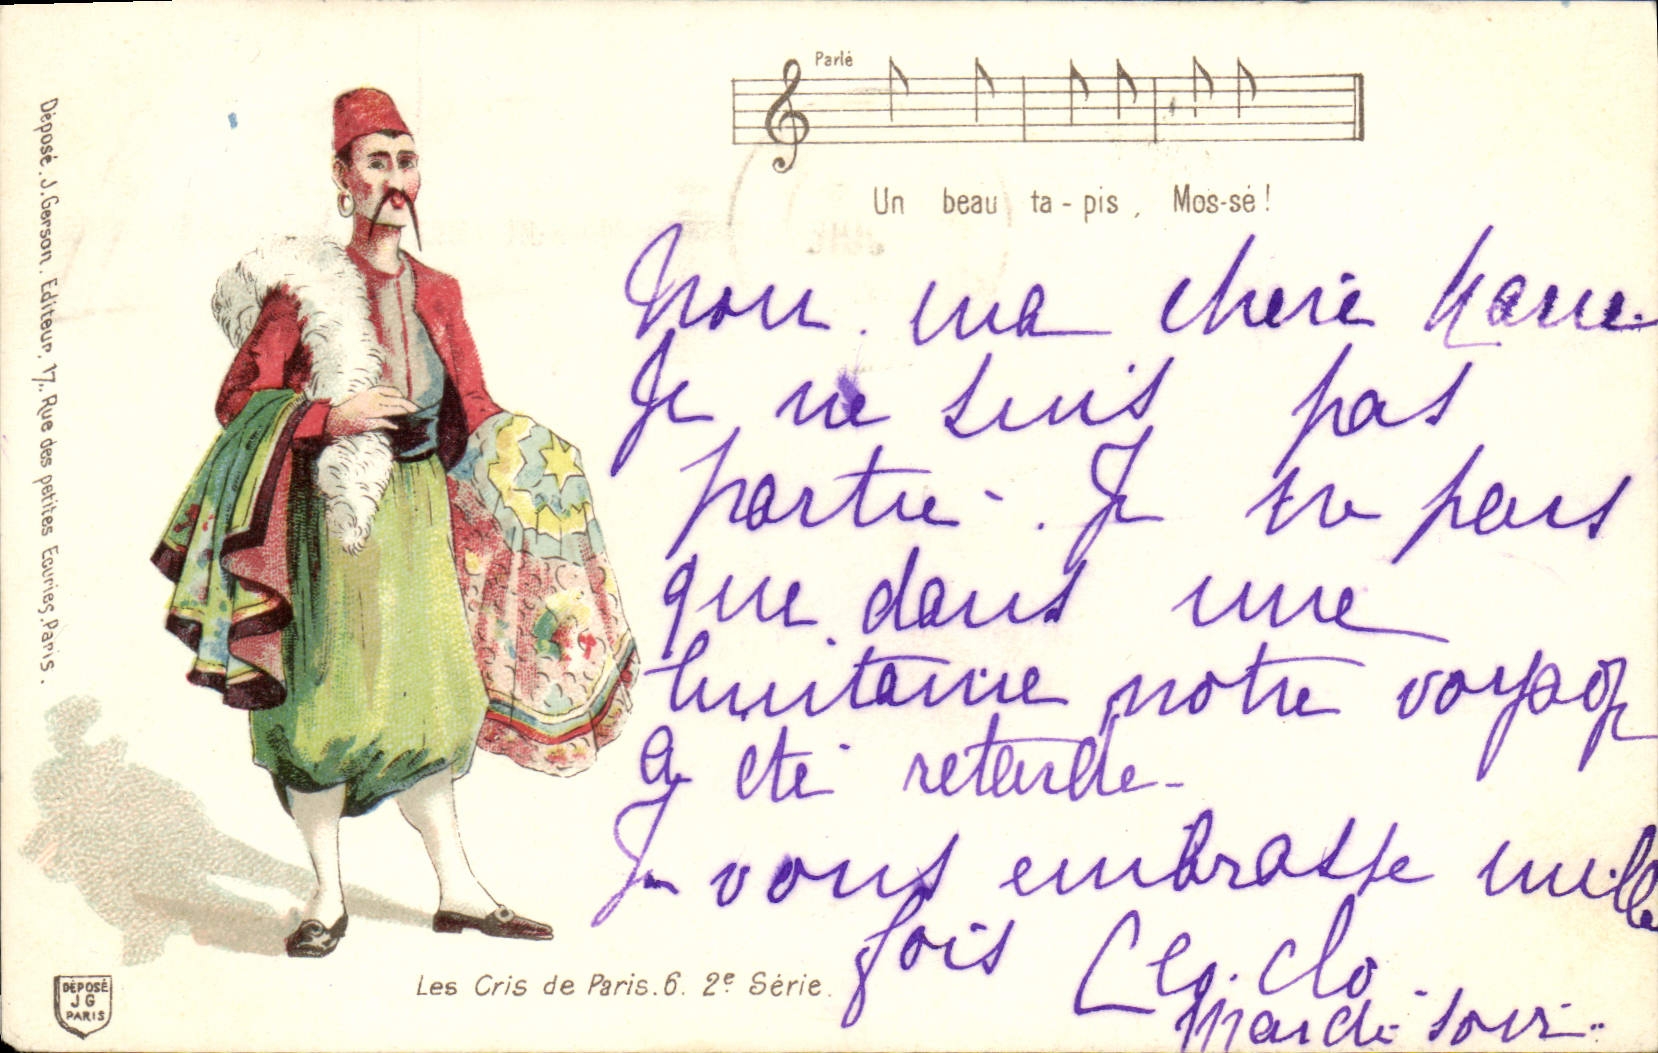 Parlé
Un beau ta-pis, Mos-sé!
Non. ma chere Marie
Je ne suis pas
partie. Je ne pars
que dans une
huitaine notre voyage
a été retardé-
Je vous embrasse mille
fois
Clo. Clo
Mardi soir.
Les Cris de Paris. 6. 2e Série.
Déposé. J. Gerson. Editeur. 17, Rue des petites Ecuries, Paris.
DÉPOSÉ
J G
PARIS